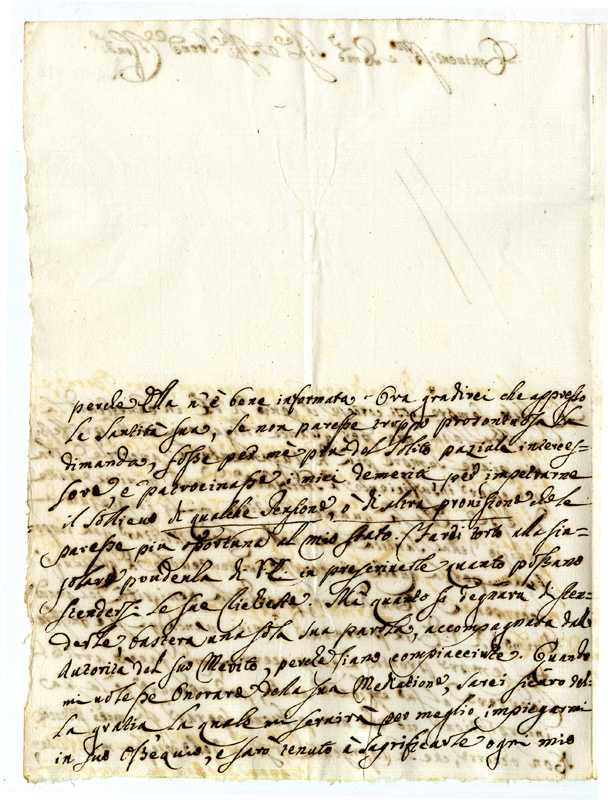 perche Ella n'è bene informata. Ora gradirei che appresso
la Santità sua, se non paresse troppo prosontuosa la
dimanda, fosse per mè più del solito parziale interces=
sore, e patrocinasse i miei demeriti, per impetrarne
il sollieuo di qualche Pensione, ò di altra prouisione che le
paresse più oportuna al mio stato. Farei torto alla sin=
golare prudenza di V.E. in prescriuerle quanto possano
stendersi le sue richieste. Mà quando si degnarà di sten=
derle basterà una sola sua parola, accompagnata dall'
Autorità del suo Merito, perche siano compiacciute. Quando
mi uolesse honorare della sua Mediatione, sarei sicuro del=
la gratia, la quale mi seruirà per meglio impiegarmi
in suo Ossequio, e sarò tenuto à sagrificarle ogni mio